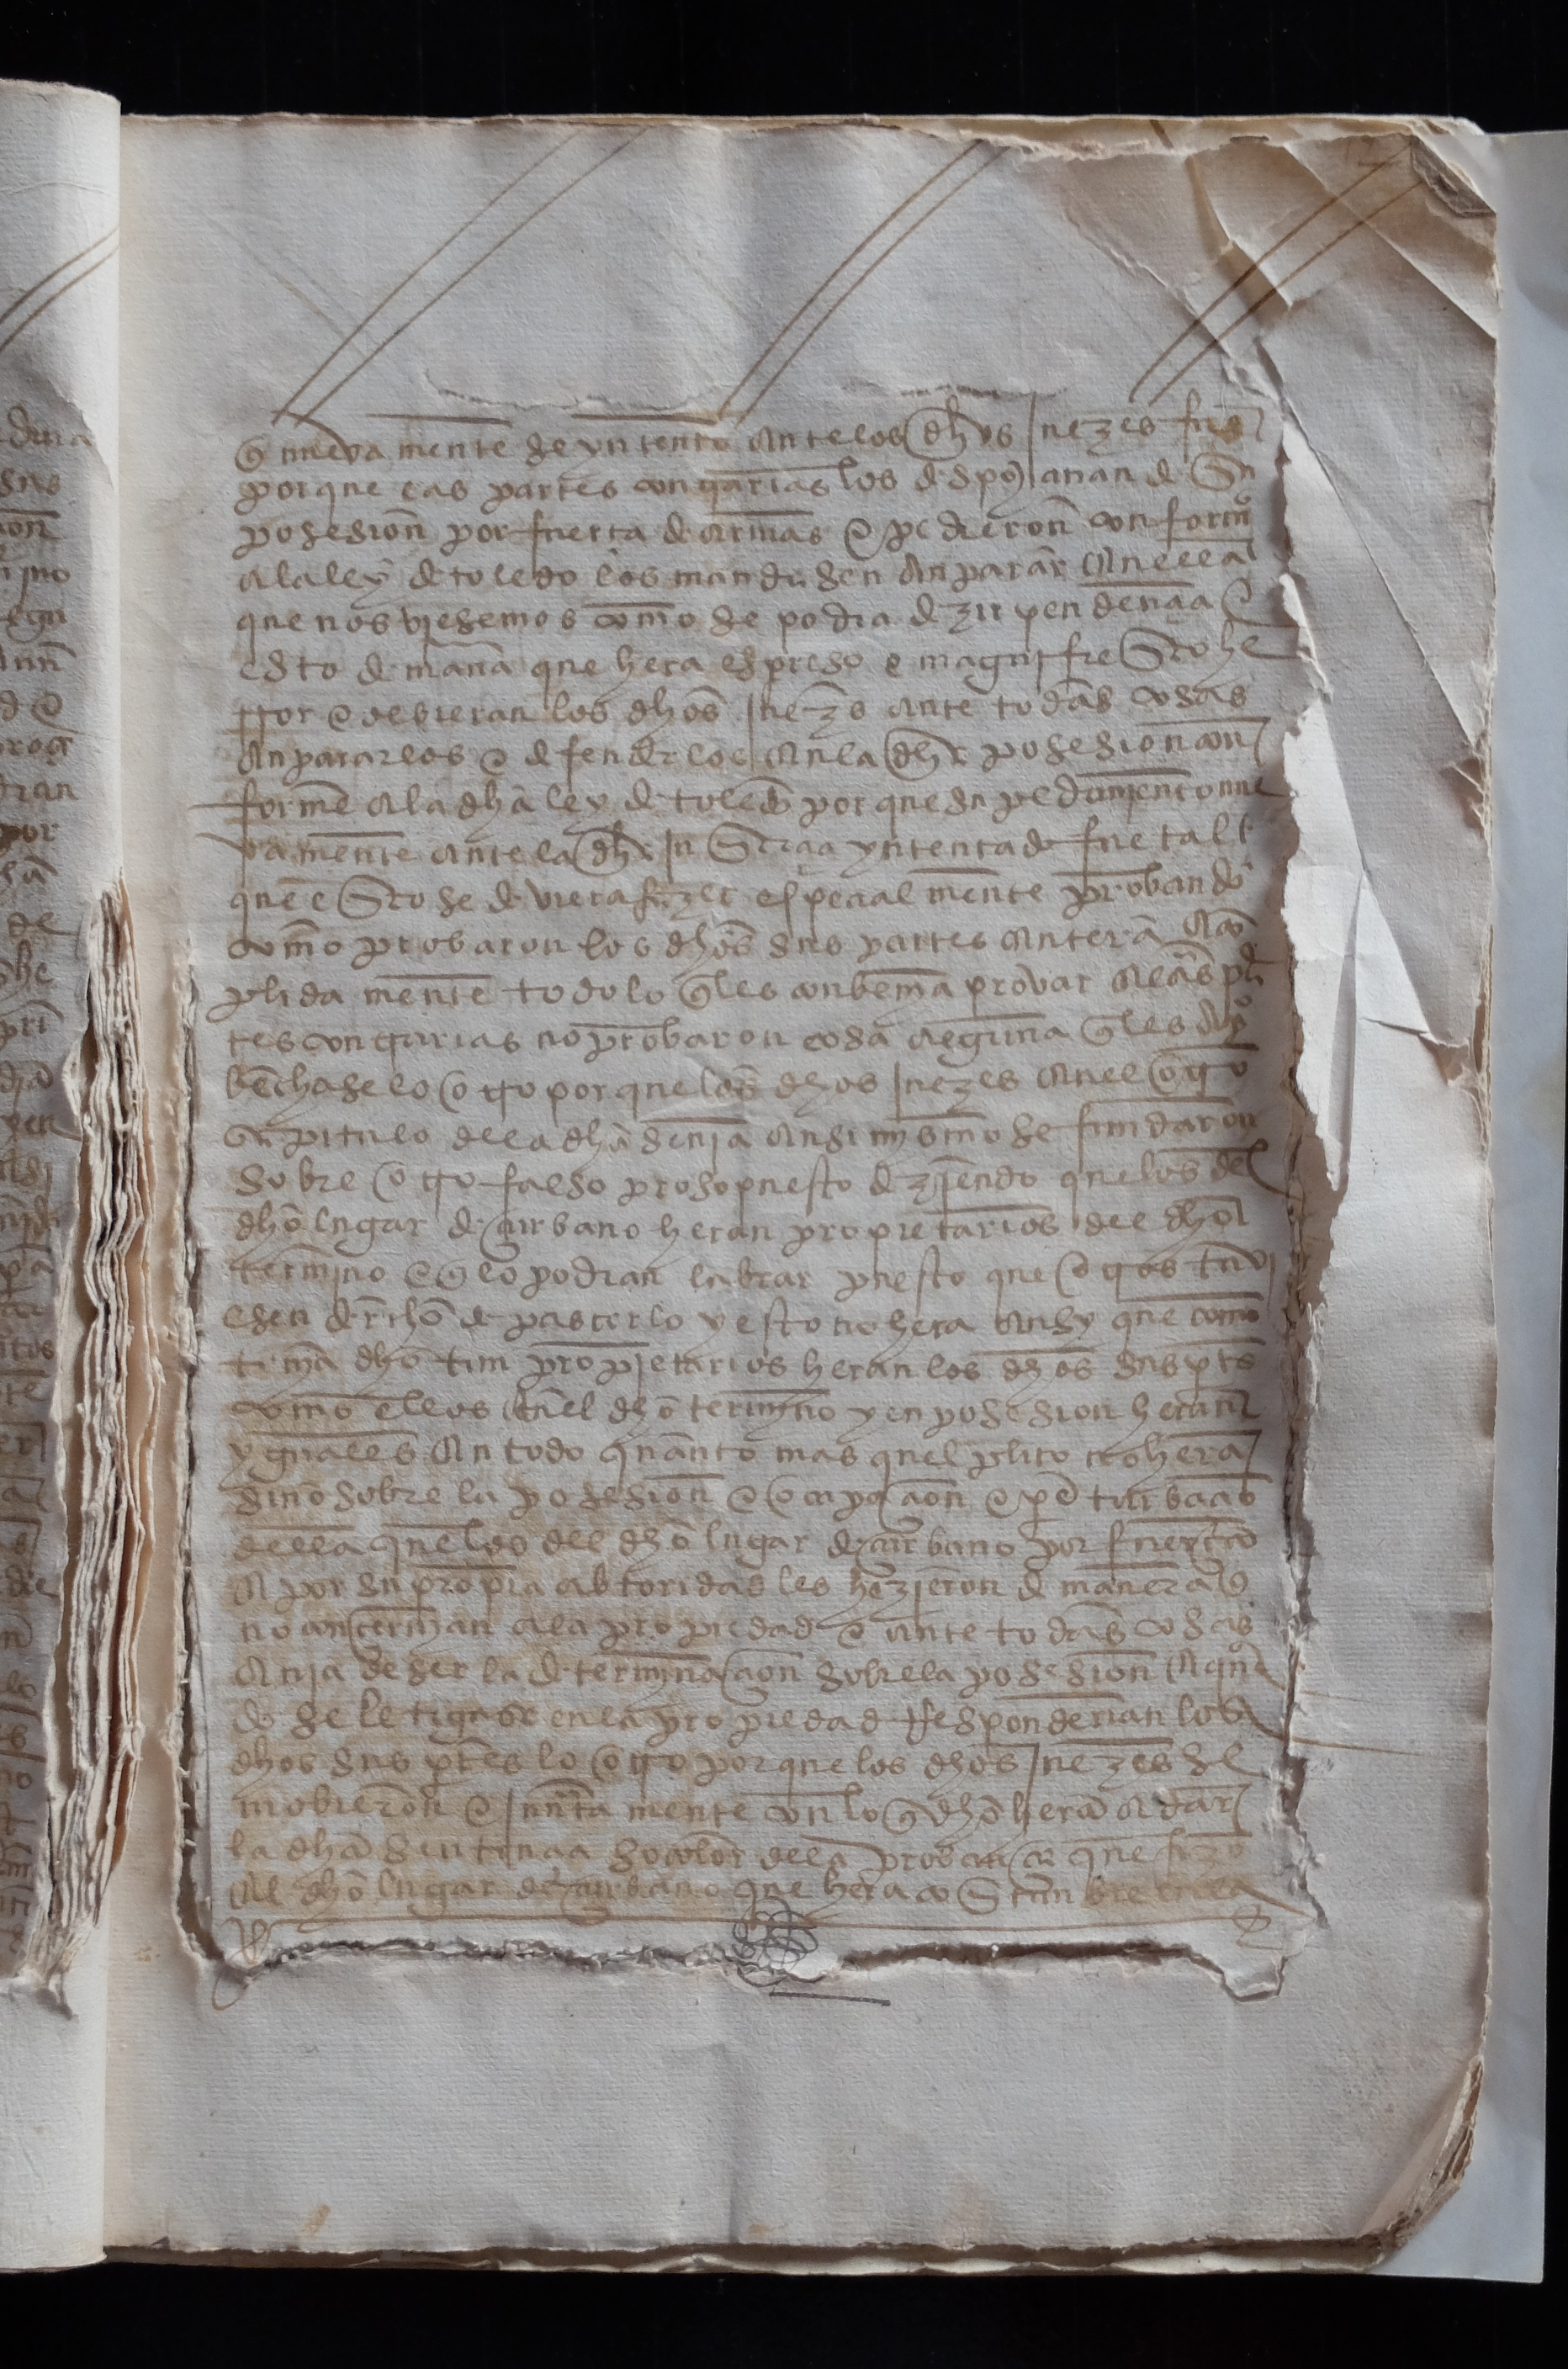 q̃ nueva mente se yntento antelos dhos juezes fue
porque las partes contrarias los despojauan de su
posesion por fuerça de armas e pedieron conforme
ala ley de toledo los mandasen anparar en ella
que nos viesemos como se podia dezir pendençia e
esto de mana que hera espreso e magnifiesto he
rror e devieran los dhos juezes ante todas cosas
anpararlos e defenderlos en la dha posesion con
forme ala dha ley de toledo porque su pedimento nue
va mente ante la dha justiçia yntentado fue tal
que esto se deviera fazer espeçial mente probando
como probaron los dhos sus partes entera
plida mente todo lo q̃ les convenia provar e las par
tes contrarias no probaron cosa alguna q̃ les apro
bechase lo otro porque los dhos juezes en el otro
capitulo dela dha senia ansi mysmo se fundaron
sobre otro falso prosopuesto diziendo que los del
dho lugar de çurbano heran propietarios del dho
termino e q̃ lo podian labrar puesto que otros tuvi
esen derecho de pascerlo y esto no hera ansy que como
dho tim propietarios heran los dhos sus ptes
como ellos en el dho termyno y en posesion heran
yguales en todo quanto mas quel plito no hera
sino sobre la posesion e perturbaçio
della que los del dho lugar de çurbano por fuerça
e por su propia abtoridad les hezieron de manera q̃
no conçernian ala propiedad e ante todas cosas
avia de ser la determinaçion sobre la posesion e quan
do se letigase en la propiedad responderian los
dhos sus ptes lo otro porque los dhos juezes se
mobieron e junta mente con lo q̃ dho hera a dar
la dha sentençia so color dela probança que fizo
el dho lugar de çurbano que hera costunbre